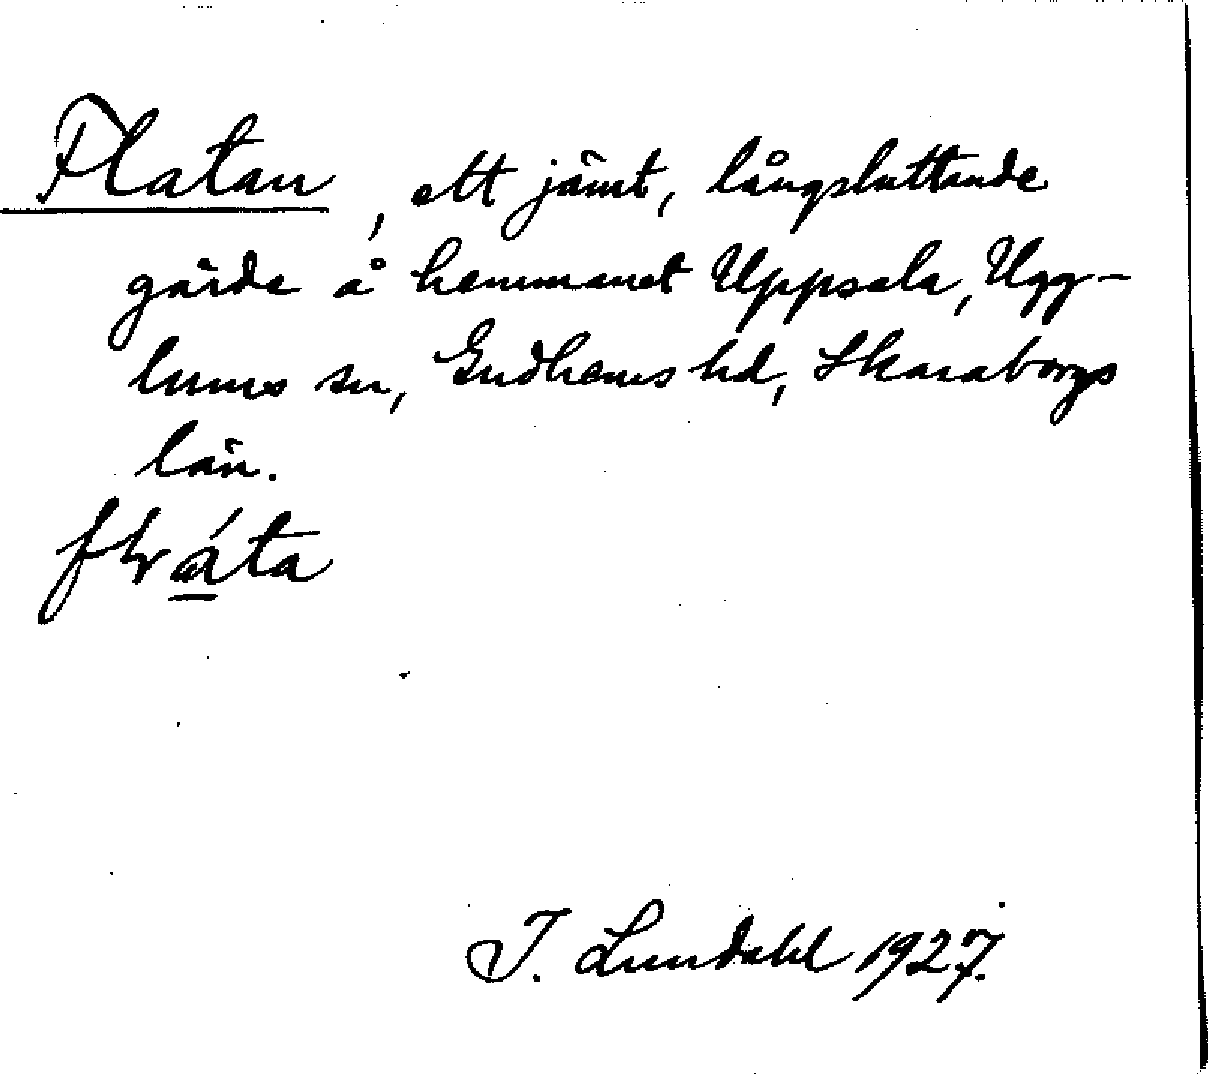 Flatan, ett jämt, långsluttande
gärde å hemmanet Uppsala, Ugg-
lums sn, Gudhems hd, Skaraborgs
län.
J. Lundahl 1927.